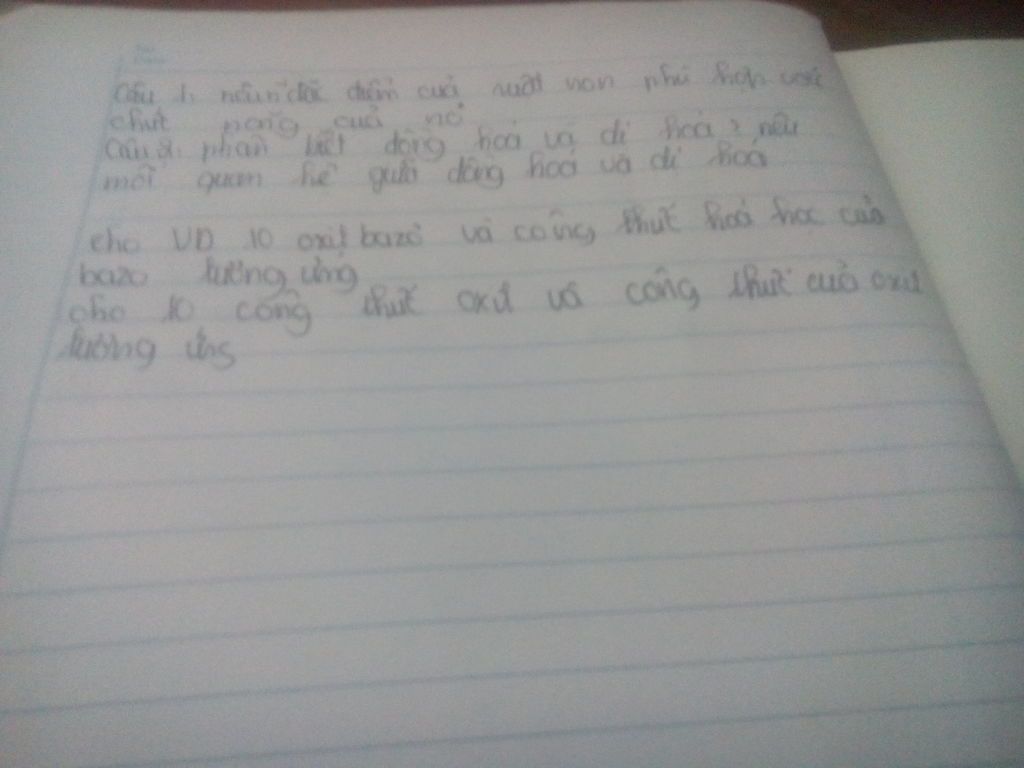 Câu 1: nêu đặc điểm của ruột non phù hợp với
chức năng của nó
Câu 2: phân biệt đồng hoá và dị hoá? nêu
mối quan hệ giữa đồng hoá và dị hoá
cho VD 10 oxit bazơ và công thức hoá học của
bazơ tương ứng
cho 10 công thức oxit và công thức của oxit
tương ứng